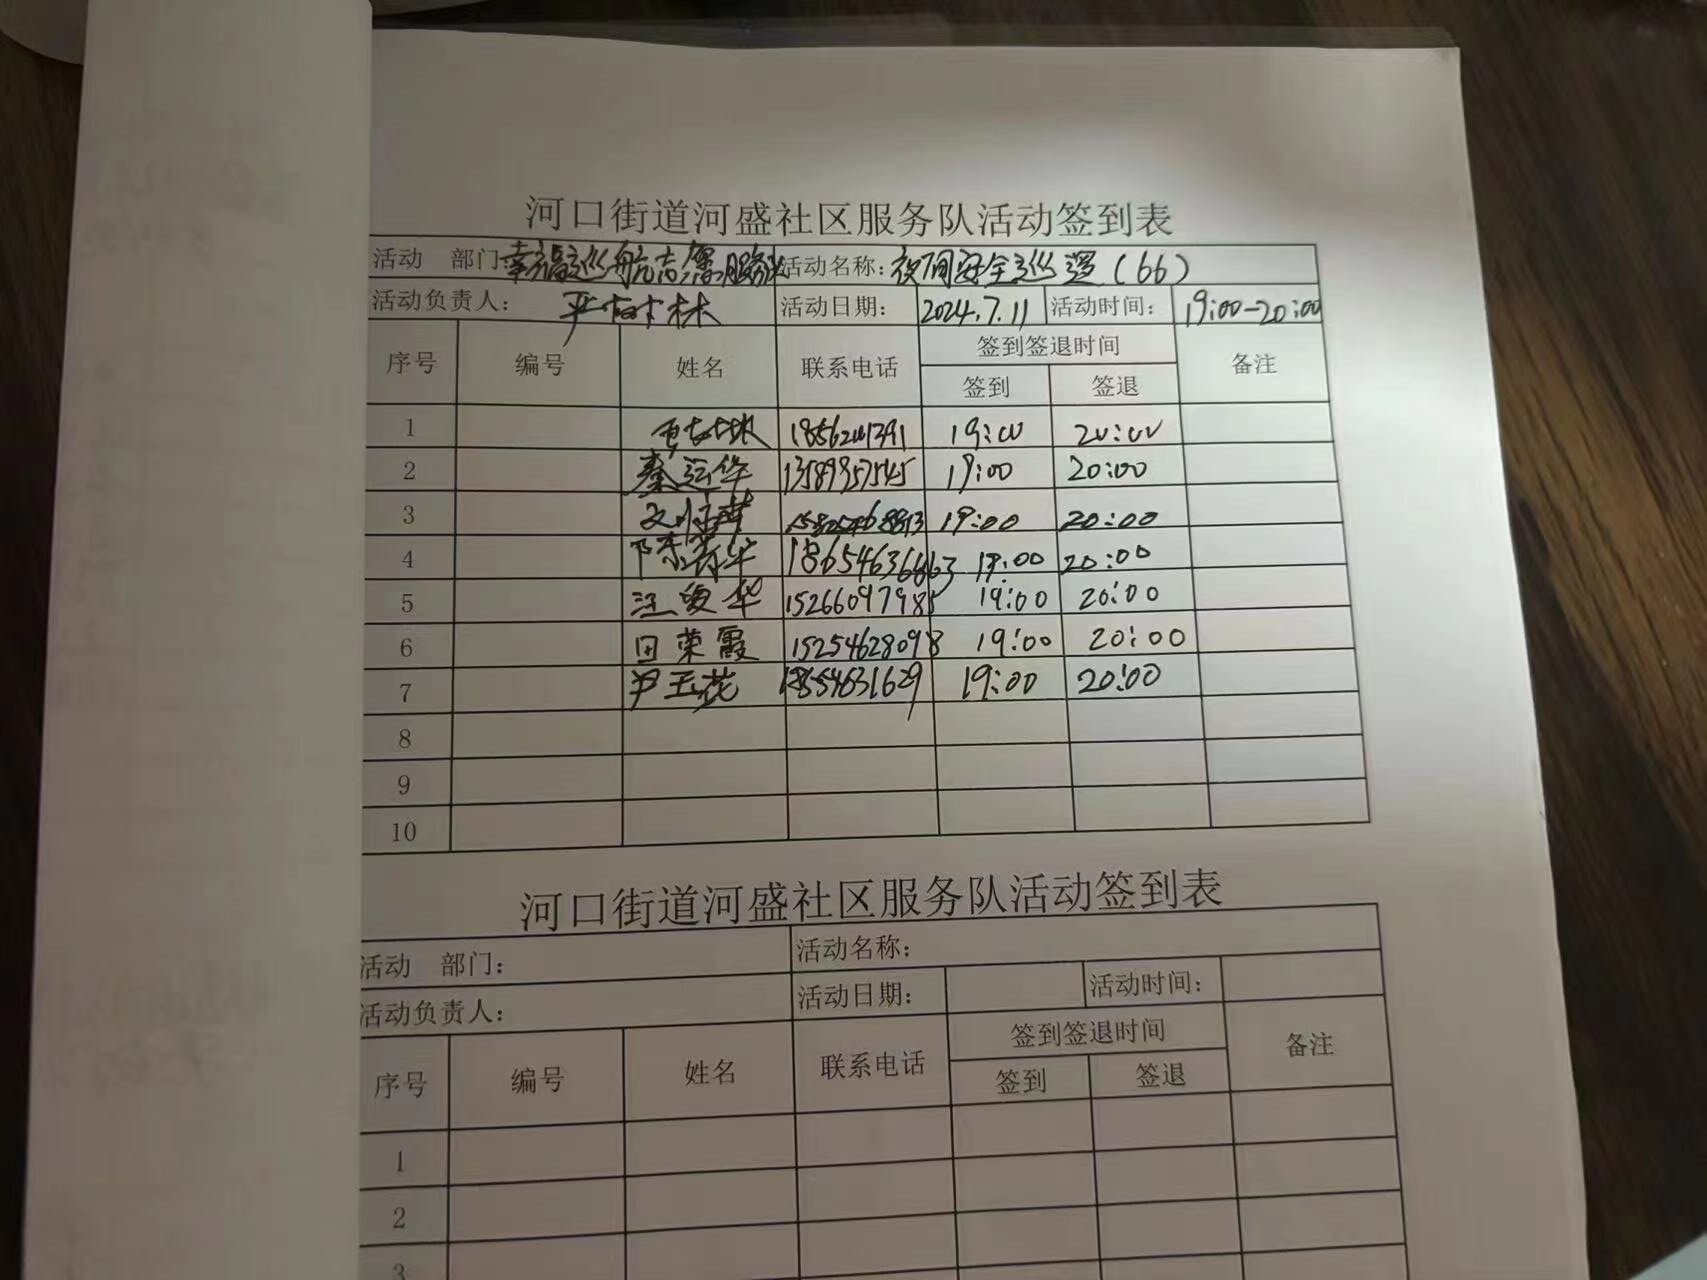 河口街道河盛社区服务队活动签到表
活动 部门 幸福巡航志愿服务队 活动名称：夜间安全巡逻（66）
活动负责人： 严树林 活动日期： 2024.7.11 活动时间： 19:00-20:00
序号 编号 姓名 联系电话 签到签退时间 备注
签到 签退
1 19:00 20:00
2 秦运华 13589957545 19:00 20:00
3 19:00 20:00
4 陈寿华 18654636863 19:00 20:00
5 汪爱华 15266097985 19:00 20:00
6 田荣霞 15254628098 19:00 20:00
7 尹玉花 18654631629 19:00 20:00
8
9
10
河口街道河盛社区服务队活动签到表
活动 部门： 活动名称：
活动负责人： 活动日期： 活动时间：
序号 编号 姓名 联系电话 签到签退时间 备注
签到 签退
1
2
3